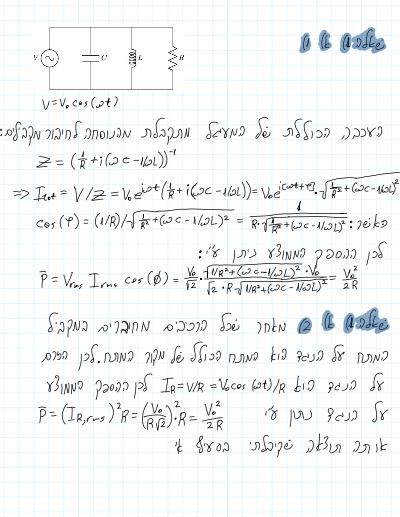 שאלה 1 א
V C L R
V=V₀cos(ωt)
העכבה הכוללת של המעגל מתקבלת מהנוסחה לחיבור מקבילים:
Z = (1/R + i(ωC - 1/ωL))⁻¹
=> Itot = V/Z = V₀e^{iωt}(1/R + i(ωC - 1/ωL)) = V₀e^{i(ωt+φ)}·√(1/R² + (ωC - 1/ωL)²
כאשר: cos(φ) = (1/R)/√(1/R² + (ωC - 1/ωL)²) = 1/(R·√(1/R² + (ωC - 1/ωL)²))
לכן ההספק הממוצע ניתן ע״י:
P̄ = Vrms Irms cos(φ) = V₀/√2 · √(1/R² + (ωC - 1/ωL)²)·V₀/(√2·R·√(1/R² + (ωC - 1/ωL)²)) = V₀²/2R
שאלה 2 א מאחר שכל הרכיבים מחוברים במקביל
המתח על הנגד הוא המתח הכולל של מקור המתח. לכן הזרם
על הנגד הוא I_R = V/R = V₀cos(ωt)/R לכן ההספק הממוצע
על הנגד נתון ע״י P̄ = (I_R,rms)²R = (V₀/R√2)²·R = V₀²/2R
אותה תוצאה שקיבלתי בסעיף א׳